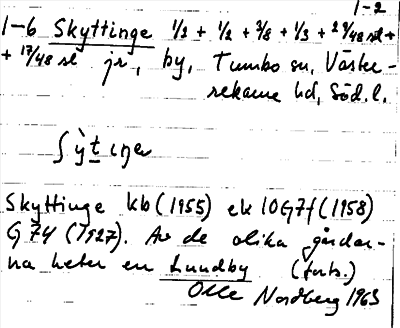 1-2
1-6 Skyttinge 1/2 + 1/2 + 3/8 + 1/3 + 2 9/48 sl +
+ 17/48 sl jr, by, Tumbo sn, Väster-
rekarne hd, Söd. l.
ʃỳtɩŋe
Skyttinge kb (1955) ek 10G7f (1958)
G 74 (1927). Av de olika gårdar-
na heter en Lundby (forts.)
Olle Nordberg 1963